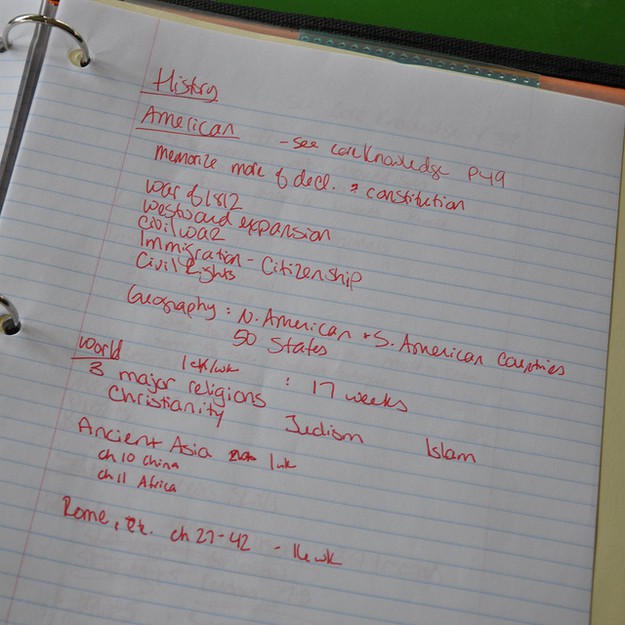 History
American - see core Knowledge p49
memorize more of decl. & constitution
War of 1812
westward expansion
civil war
Immigration - Citizenship
Civil Rights
Geography: N. American + S. American countries
50 States
World 1 ch/wk : 17 weeks
3 major religions
Christianity Judism Islam
Ancient Asia 1wk
ch 10 China
ch 11 Africa
Rome, etc. ch 27-42 - 16 wk